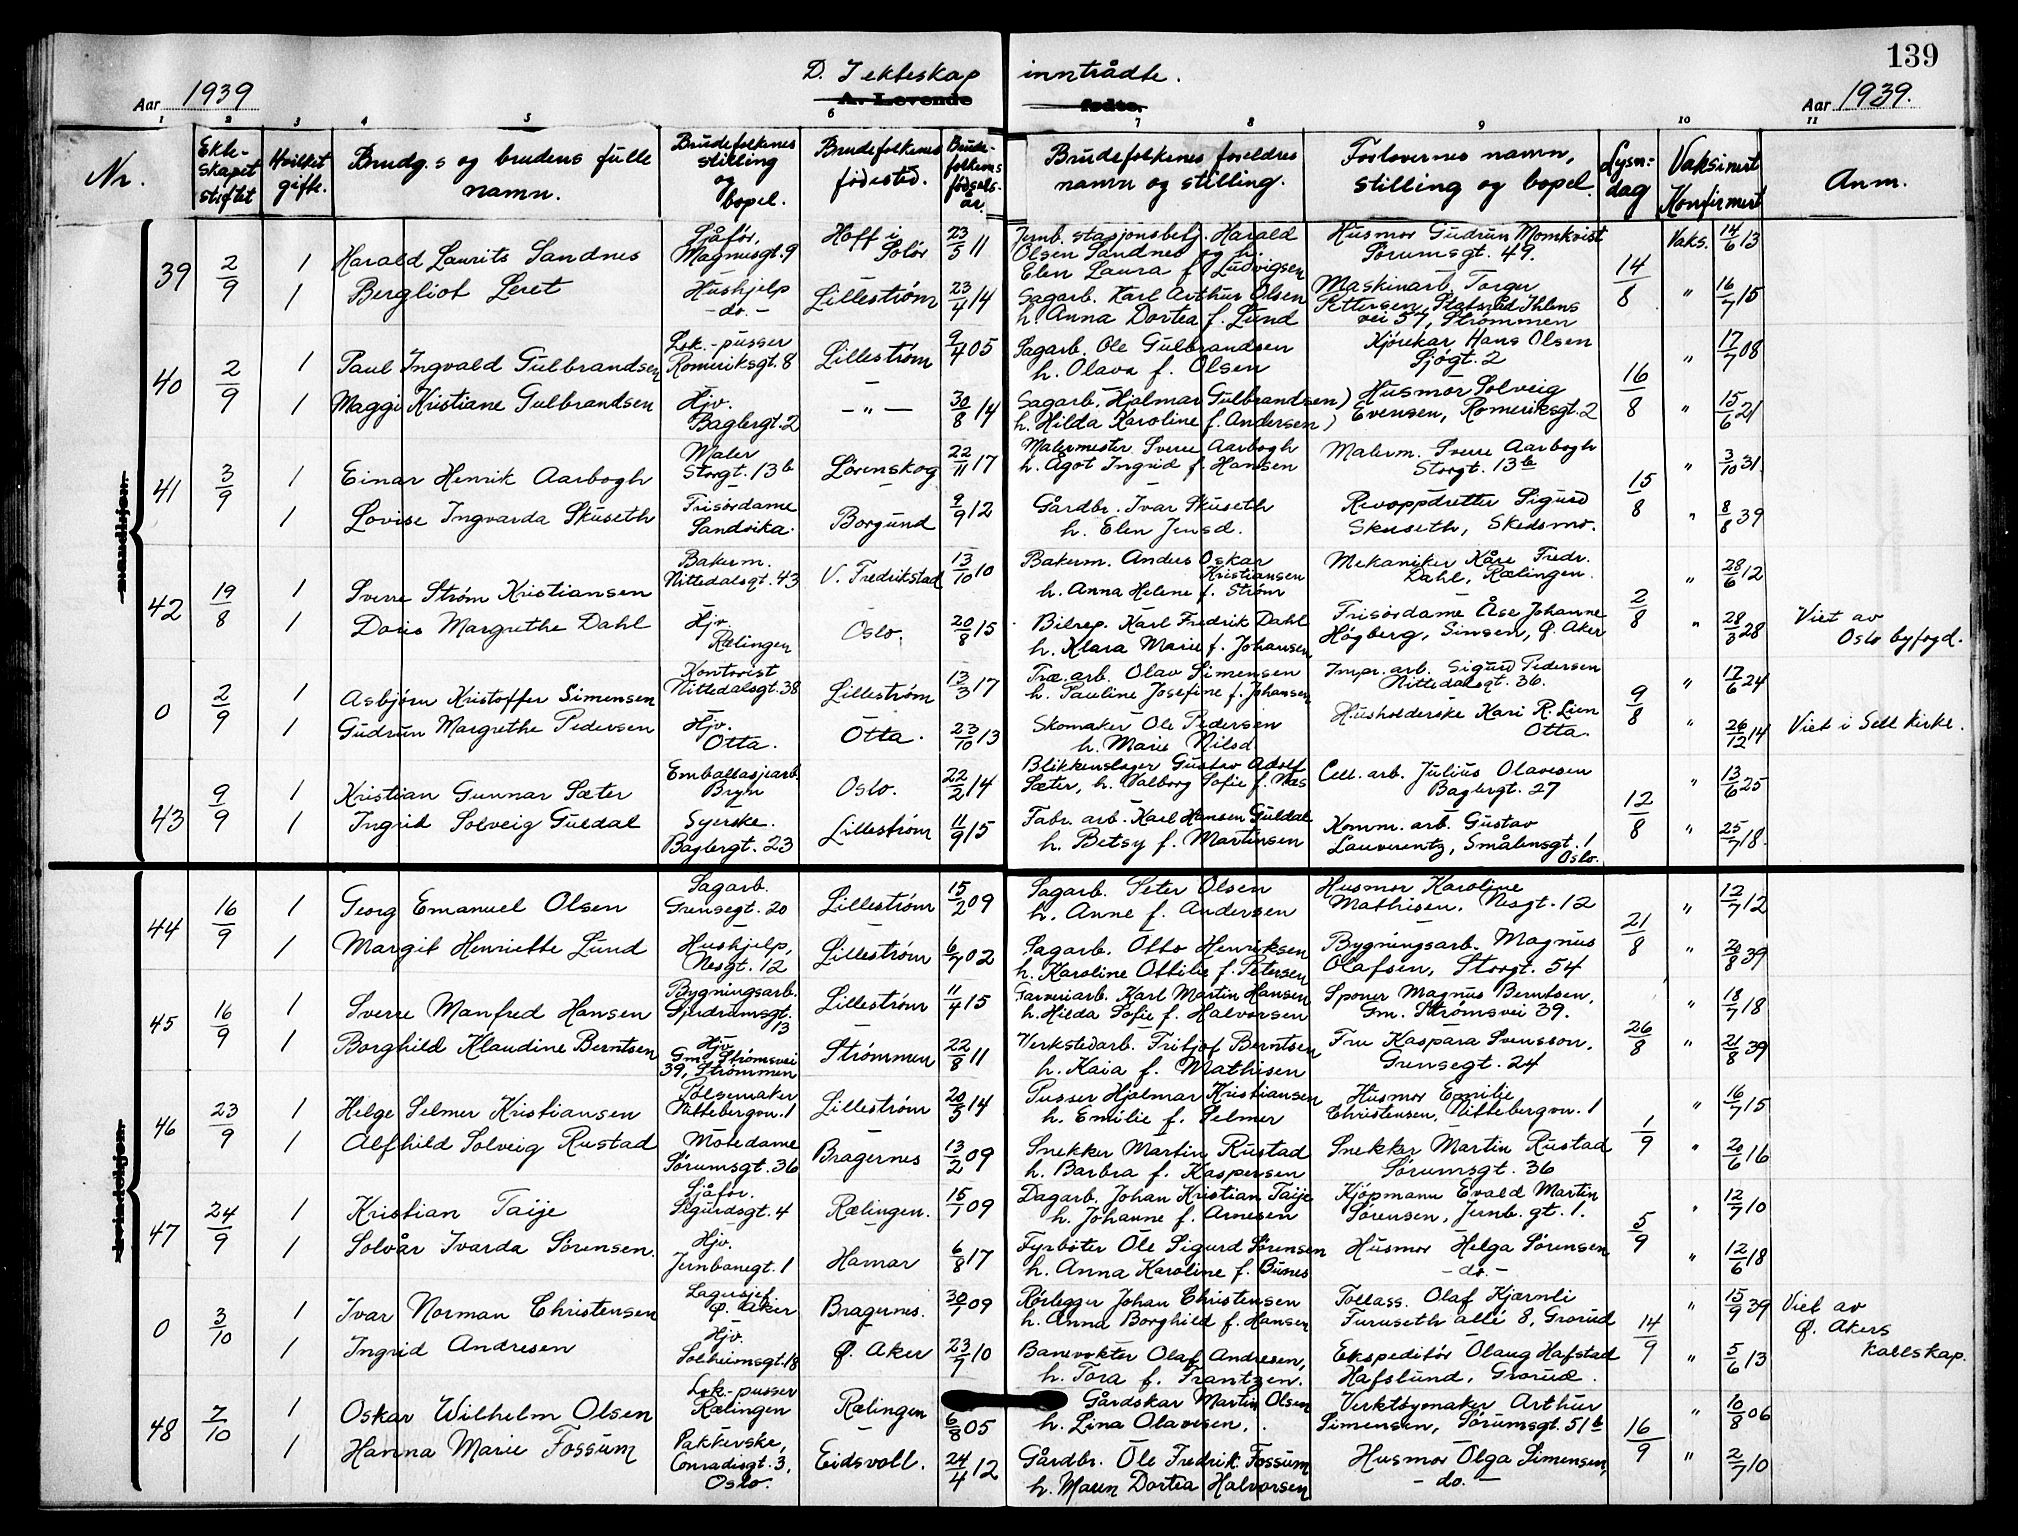 139
D. I ekteskap inntrådte.
Aar 1939 A. Levende fødte. Aar 1939.
1 2 3 4 5 6 7 8 9 10 11
Nr. Ekte-skapet stiftet Hvilket gifte. Brudg.s og brudens fulle namn. Brudefolkenes stilling og bopel. Brudefolkenes fødested. Brude-folkenes fødsels-år. Brudefolkenes foreldres namn og stilling. Forlovernes namn, stilling og bopel. Lysn:dag Vaksinert Konfirmert Anm.
mandkjøn.
39 2/9 1 Harald Laurits Sandnes Sjåfør, Magnusgt. 9 Hoff i Solør 23/3 11 Jernb. stasjonsbetj. Harald Olsen Sandnes og h. Elen Laura f. Ludvigsen Husmor Gudrun Momkvist Sørumsgt. 49. 14/8 Vaks. 14/6 13
1 Bergliot Leret Hushjelp - do. - Lillestrøm 23/4 14 Sagarb. Karl Arthur Olsen h. Anna Dortea f. Lund Maskinarb. Torger Pettersen, Stasråd Ihlens vei 37, Strømmen " 16/7 15
40 2/9 1 Paul Ingvald Gulbrandsen Lok.-pusser Romeriksgt. 8 Lillestrøm 9/4 05 Sagarb. Ole Gulbrandsen h. Olava f. Olsen Kjørekar Hans Olsen Sjøgt. 2 16/8 " 17/7 08
1 Maggi Kristiane Gulbrandsen Hjv. Baglergt. 2 - " - 30/8 14 Sagarb. Hjalmar Gulbrandsen) h. Hilda Karoline f. Andersen) Husmor Solveig Evensen, Romeriksgt. 2 " 15/6 21
41 3/9 1 Einar Henrik Aarbogh Maler Storgt. 13b Lørenskog 22/11 17 Malermester Sverre Aarbogh h. Agot Ingrid f. Hansen Malerm. Sverre Aarbogh Storgt. 13b 15/8 " 3/10 31
1 Lovise Ingvarda Skuseth Frisørdame Sandvika. Borgund 9/9 12 Gårdbr. Ivar Skuseth h. Elen Jensd. Revoppdretter Sigurd Skuseth, Skedsmo. " 8/8 39
42 19/8 1 Sverre Strøm Kristiansen Bakerm. Nittedalsgt. 43 V. Fredrikstad 13/10 10 Bakerm. Anders Oskar Kristiansen h. Anna Helene f. Strøm Mekaniker Kåre Fredr. Dahl, Rælingen. 2/8 " 28/6 12
1 Doris Margrethe Dahl Hjv. Rælingen Oslo. 20/8 15 Bilrep. Karl Fredrik Dahl h. Klara Marie f. Johansen Frisørdame Åse Johanne Høgberg, Sinsen, Ø. Aker " 28/3 28 Viet av Oslo byfogd.
0 2/9 1 Asbjørn Kristoffer Simensen Kontorist Nittedalsgt. 38 Lillestrøm 13/3 17 Træ.arb. Olav Simensen h. Pauline Josefine f. Johansen Impr. arb. Sigurd Pedersen Nittedalsgt. 36. 9/8 " 17/6 24
1 Gudrun Margrethe Pedersen Hjv. Otta. Otta. 23/10 13 Skomaker Ole Pedersen h. Marie Nilsd Husholderske Kari R. Lien Otta. " 26/12 14 Viet i Sell kirke.
43 9/9 1 Kristian Gunnar Sæter Emballasjearb. Bryn Oslo. 22/2 14 Blikkenslager Gustav Adolf Sæter, h. Valborg Sofie f. Næs Cell. arb. Julius Olavesen Baglergt. 27 12/8 " 13/6 25
1 Ingrid Solveig Guldal Syerske. Baglergt. 23 Lillestrøm 11/9 15 Fabr. arb. Karl Hansen Guldal h. Betsy f. Martinsen Komm. arb. Gustav Lauverentz, Smålensgt. 1 Oslo. " 25/7 18.
kvindekjøn.
44 16/9 1 Georg Emanuel Olsen Sagarb. Grensegt. 20 Lillestrøm 15/2 09 Sagarb. Peter Olsen h. Anne f. Andersen Husmor Karoline Mathisen, Nesgt. 12 21/8 " 12/7 12
1 Margit Henriette Lund Hushjelp, Nesgt. 12 Lillestrøm 6/7 02 Sagarb. Otto Henriksen h. Karoline Ottilie f. Petersen Bygningsarb. Magnus Olafsen, Storgt. 54 " 20/8 39
45 16/9 1 Sverre Manfred Hansen Bygningsarb. Gjerdrumsgt. 13 Lillestrøm 11/4 15 Garveriarb. Karl Martin Hansen h. Hilda Sofie f. Halvorsen Sponer Magnus Berntsen, Gm. Strømsvei 39. 26/8 " 18/7 18
1 Borghild Klaudine Berntsen Hjv. Gm. Strømsvei 39, Strømmen Strømmen 22/8 11 Verkstedarb. Fritjof Berntsen h. Kaia f. Mathisen Fru Kaspara Svensson, Grensegt. 24 " 21/8 39
46 23/9 1 Helge Selmer Kristiansen Pølsemaker Nittebergvn. 1 Lillestrøm 20/5 14 Pusser Hjalmar Kristiansen h. Emilie f. Selmer Husmor Emilie Christensen, Nittebergvn. 1 1/9 " 16/7 15
1 Alfhild Solveig Rustad Motedame Sørumsgt. 36 Bragernes 13/2 09 Snekker Martin Rustad h. Barbra f. Kaspersen Snekker Martin Rustad Sørumsgt. 36 " 20/6 16
47 24/9 1 Kristian Taije Sjåfør. Sigurdsgt. 4 Rælingen. 15/7 09 Dagarb. Johan Kristian Taije h. Johanne f. Arnesen Kjøpmann Evald Martin Sørensen, Jernb. gt. 1. 5/9 " 12/7 10
1 Solvår Ivarda Sørensen. Hjv. Jernbanegt. 1 Hamar 6/8 17 Fyrbøter Ole Sigurd Sørensen h. Anna Karoline f. Busnes Husmor Helga Sørensen - do. - " 12/6 18
0 3/10 1 Ivar Norman Christensen Lagersjef Ø. Aker Bragernes. 30/7 09 Rørlegger Johan Christensen h. Anna Borghild f. Hansen Tollass. Olaf Kjærnli Furuseth allé 8, Grorud 14/9 " 15/9 39 Viet av Ø. Akers kallskap.
1 Ingrid Andresen Hjv. Solheimsgt. 18 Ø. Aker 23/7 10 Banevokter Olaf Andresen, h. Tora f. Frantzen. Ekspeditør Olaug Hafstad Hafslund, Grorud. " 5/6 13
48 7/10 1 Oskar Wilhelm Olsen Lok.-pusser Rælingen Rælingen 6/8 05 Gårdskar Martin Olsen h. Lina Olavesen, Verktøymaker Arthur Simensen, Sørumsgt. 51b 16/9 " 10/8 06
1 Hanna Marie Fossum Pakkerske, Conradisgt. 3, Oslo. Eidsvoll. 24/4 12 Gårdbr. Ole Fredrik Fossum h. Maren Dortea Halvorsen Husmor Olga Simensen, - do. - " 2/7 10